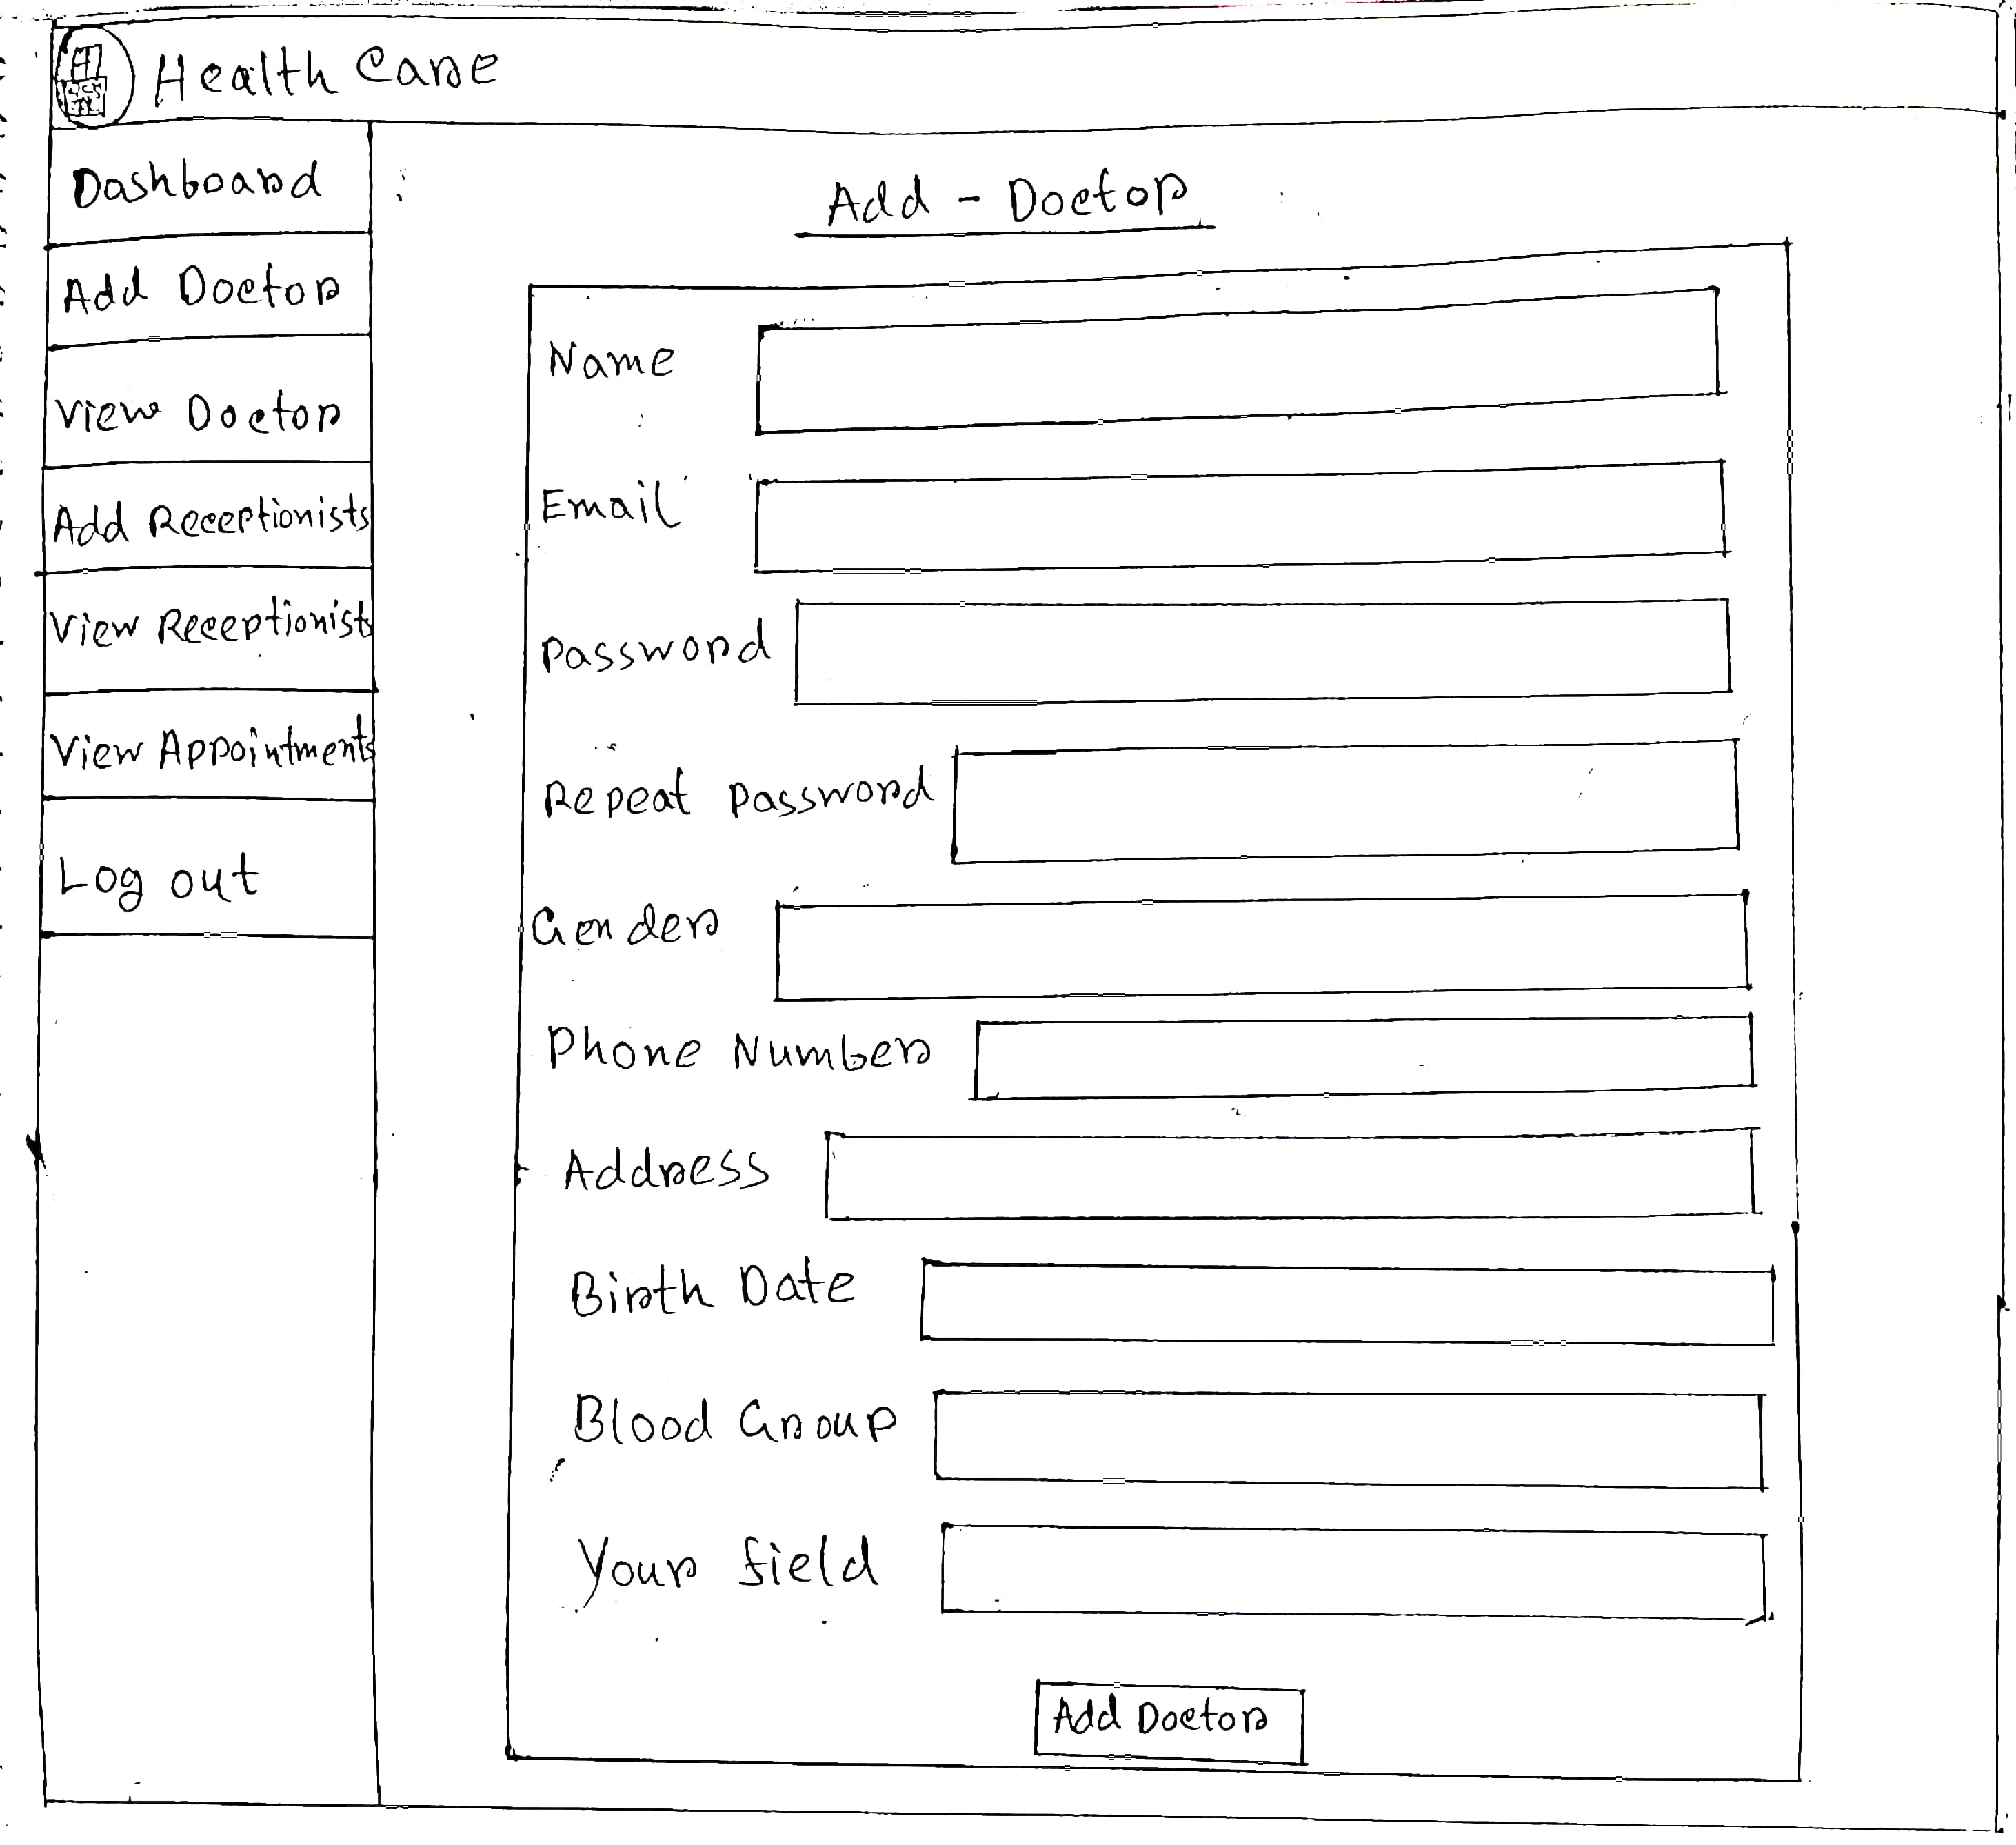 Health Care
Dashboard
Add Doctor
View Doctor
Add Receptionists
View Receptionists
View Appointments
Log out
Add - Doctor
Name
Email
Password
Repeat Password
Gender
Phone Number
Address
Birth Date
Blood Group
Your field
Add Doctor